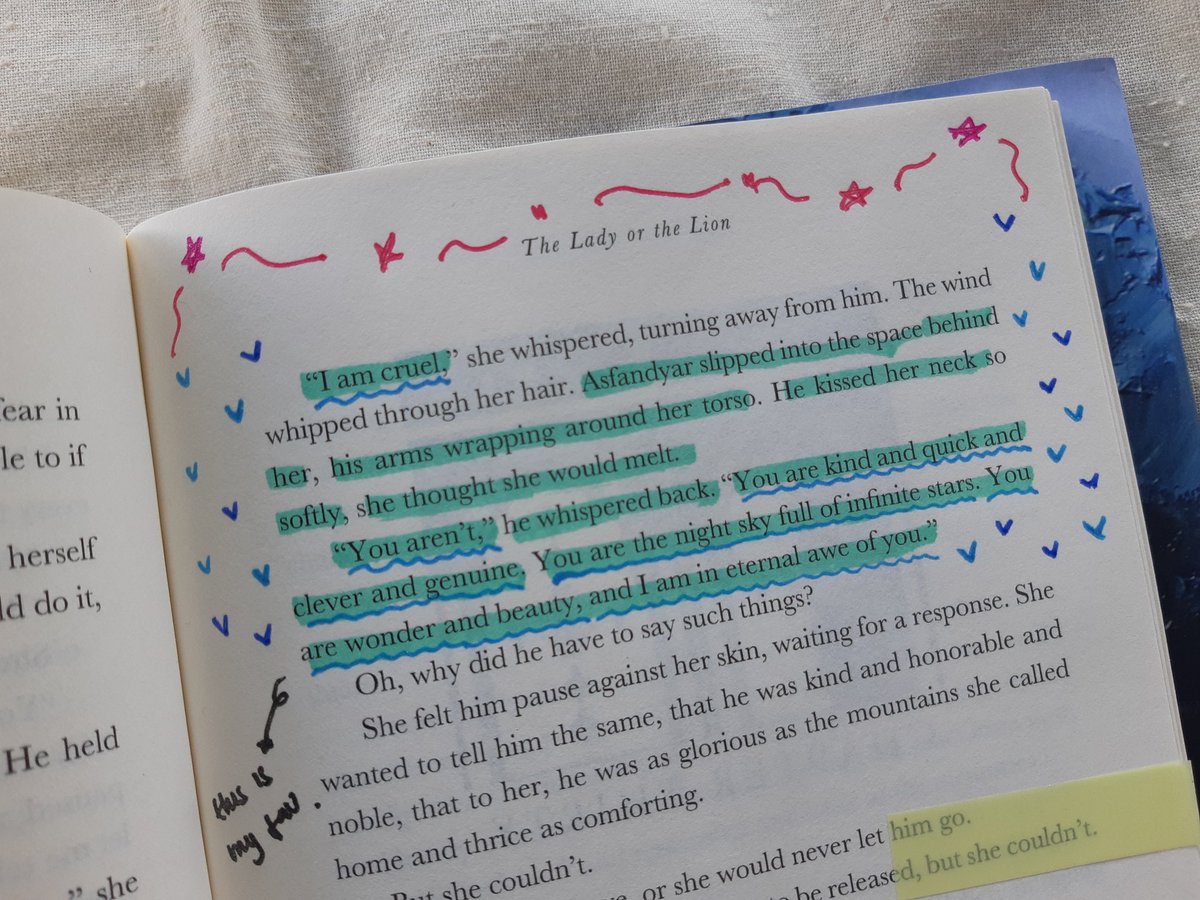 fear in
le to if
herself
ld do it,
He held
” she
The Lady or the Lion
“I am cruel,” she whispered, turning away from him. The wind
whipped through her hair. Asfandyar slipped into the space behind
her, his arms wrapping around her torso. He kissed her neck so
softly, she thought she would melt.
“You aren’t,” he whispered back. “You are kind and quick and
clever and genuine. You are the night sky full of infinite stars. You
are wonder and beauty, and I am in eternal awe of you.”
Oh, why did he have to say such things?
She felt him pause against her skin, waiting for a response. She
wanted to tell him the same, that he was kind and honorable and
noble, that to her, he was as glorious as the mountains she called
home and thrice as comforting.
But she couldn’t.
or she would never let him go.
be released, but she couldn’t.
this is
my